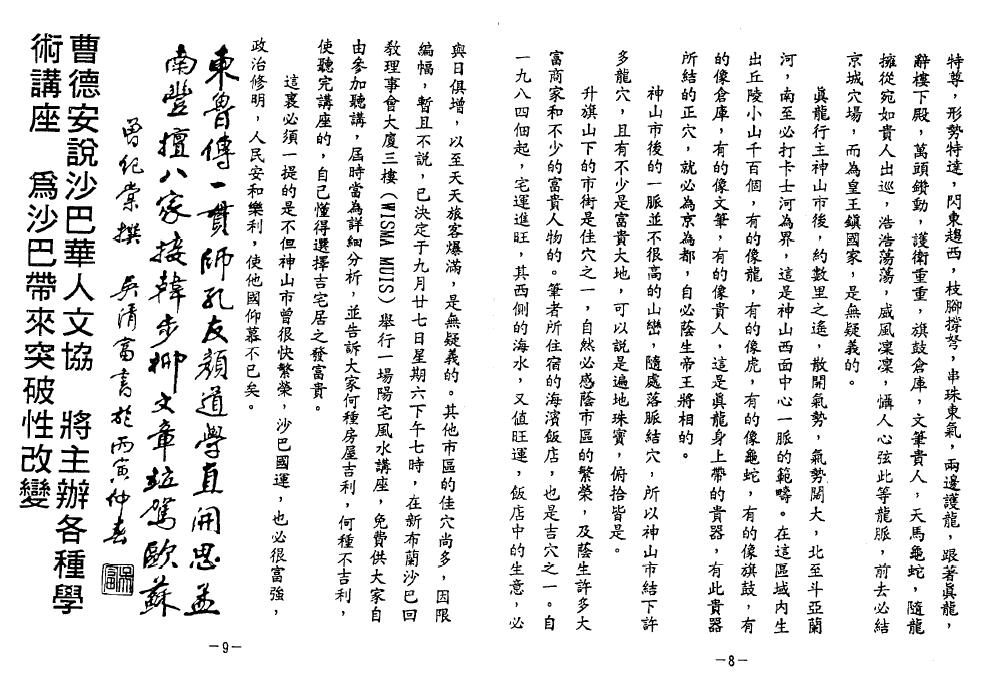 特尊，形勢特達，閃東趨西，枝腳撐拏，串珠東氣，兩邊護龍，跟著眞龍，
辭樓下殿，萬頭鑽動，護衛重重，旗鼓倉庫，文筆貴人，天馬龜蛇，隨龍
擁從宛如貴人出巡，浩浩蕩蕩，威風凜凜，懾人心弦此等龍脈，前去必結
京城穴場，而為皇王鎮國家，是無疑義的。
眞龍行主神山市後，約數里之遙，散開氣勢，氣勢闊大，北至斗亞蘭
河，南至必打卡士河為界，這是神山西面中心一脈的範疇。在這區域內生
出丘陵小山千百個，有的像龍，有的像虎，有的像龜蛇，有的像旗鼓，有
的像倉庫，有的像文筆，有的像貴人，這是眞龍身上帶的貴器，有此貴器
所結的正穴，就必為京為都，自必蔭生帝王將相的。
神山市後的一脈並不很高的山巒，隨處落脈結穴，所以神山市結下許
多龍穴，且有不少是富貴大地，可以說是遍地珠寶，俯拾皆是。
升旗山下的市街是佳穴之一，自然必感蔭市區的繁榮，及蔭生許多大
富商家和不少的富貴人物的。筆者所住宿的海濱飯店，也是吉穴之一。自
一九八四個起，宅運進旺，其西側的海水，又值旺運，飯店中的生意，必
－8－
與日俱增，以至天天旅客爆滿，是無疑義的。其他市區的佳穴尚多，因限
編幅，暫且不說，已決定于九月廿七日星期六下午七時，在新布蘭沙巴回
教理事會大廈三樓（WISMA MUIS）舉行一場陽宅風水講座，免費供大家自
由參加聽講，屆時當為詳細分析，並告訴大家何種房屋吉利，何種不吉利，
使聽完講座的，自己懂得選擇吉宅居之發富貴。
這裏必須一提的是不但神山市曾很快繁榮，沙巴國運，也必很富強，
政治修明，人民安和樂利，使他國仰慕不已矣。
東魯傳一貫師孔友顏道學直開思孟
南豐擅八家接韓步柳文章竝駕歐蘇
曾纪棠撰　吳清富書於丙寅仲春
曹德安說沙巴華人文協　將主辦各種學
術講座　為沙巴帶來突破性改變
－9－